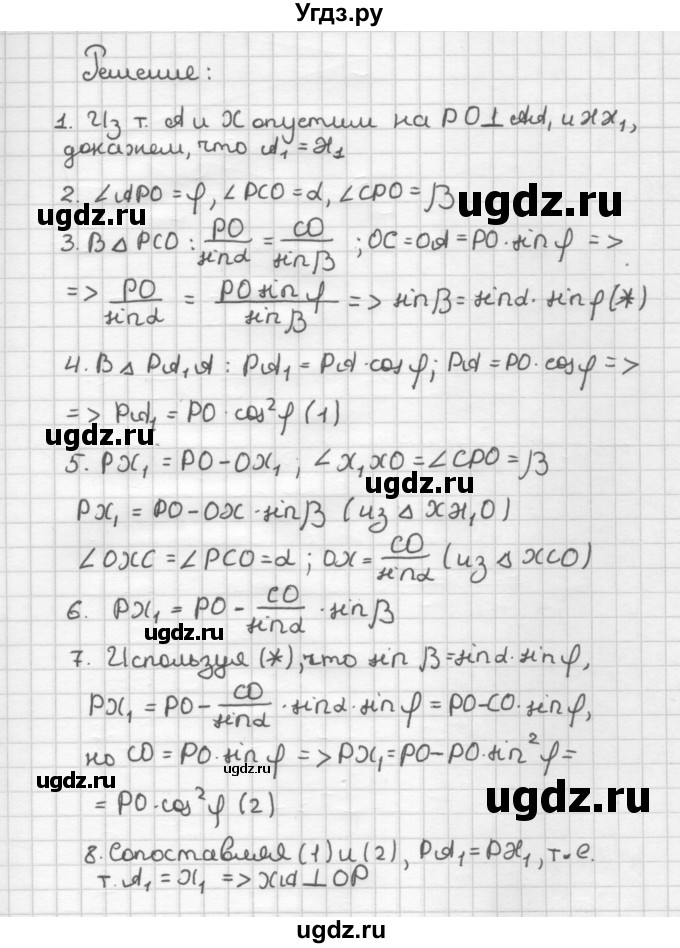 Угдз.ру
Решение:
1. Из т. A и X опустим на PO⊥ AA₁ и XX₁,
докажем, что A₁ = X₁
2. ∠APO = φ, ∠PCO = α, ∠CPO = β
ugdz.ru
ugdz.ru
3. В △ PCO : PO/sinα = CO/sinβ ; OC = OA = PO · sinφ =>
=> PO/sinα = PO sinφ/sinβ => sinβ = sinα · sinφ (*)
4. В △ PA₁A : PA₁ = PA · cosφ; PA = PO · cosφ =>
=> PA₁ = PO · cos²φ (1)
ugdz.ru
5. PX₁ = PO – OX₁ ; ∠X₁XO = ∠CPO = β
ugdz.ru
PX₁ = PO – OX · sinβ (из △ XX₁O)
∠OXC = ∠PCO = α ; OX = CO/sinα (из △ XCO)
6. PX₁ = PO – CO/sinα · sinβ
ugdz.ru
7. Используя (*), что sinβ = sinα · sinφ,
PX₁ = PO – CO/sinα · sinα · sinφ = PO – CO · sinφ,
но CO = PO · sinφ => PX₁ = PO – PO · sin²φ =
ugdz.ru
ugdz.ru
= PO · cos²φ (2)
ugdz.ru
8. Сопоставляя (1) и (2), PA₁ = PX₁, т.е.
т. A₁ = X₁ => XA ⊥ OP
ugdz.ru